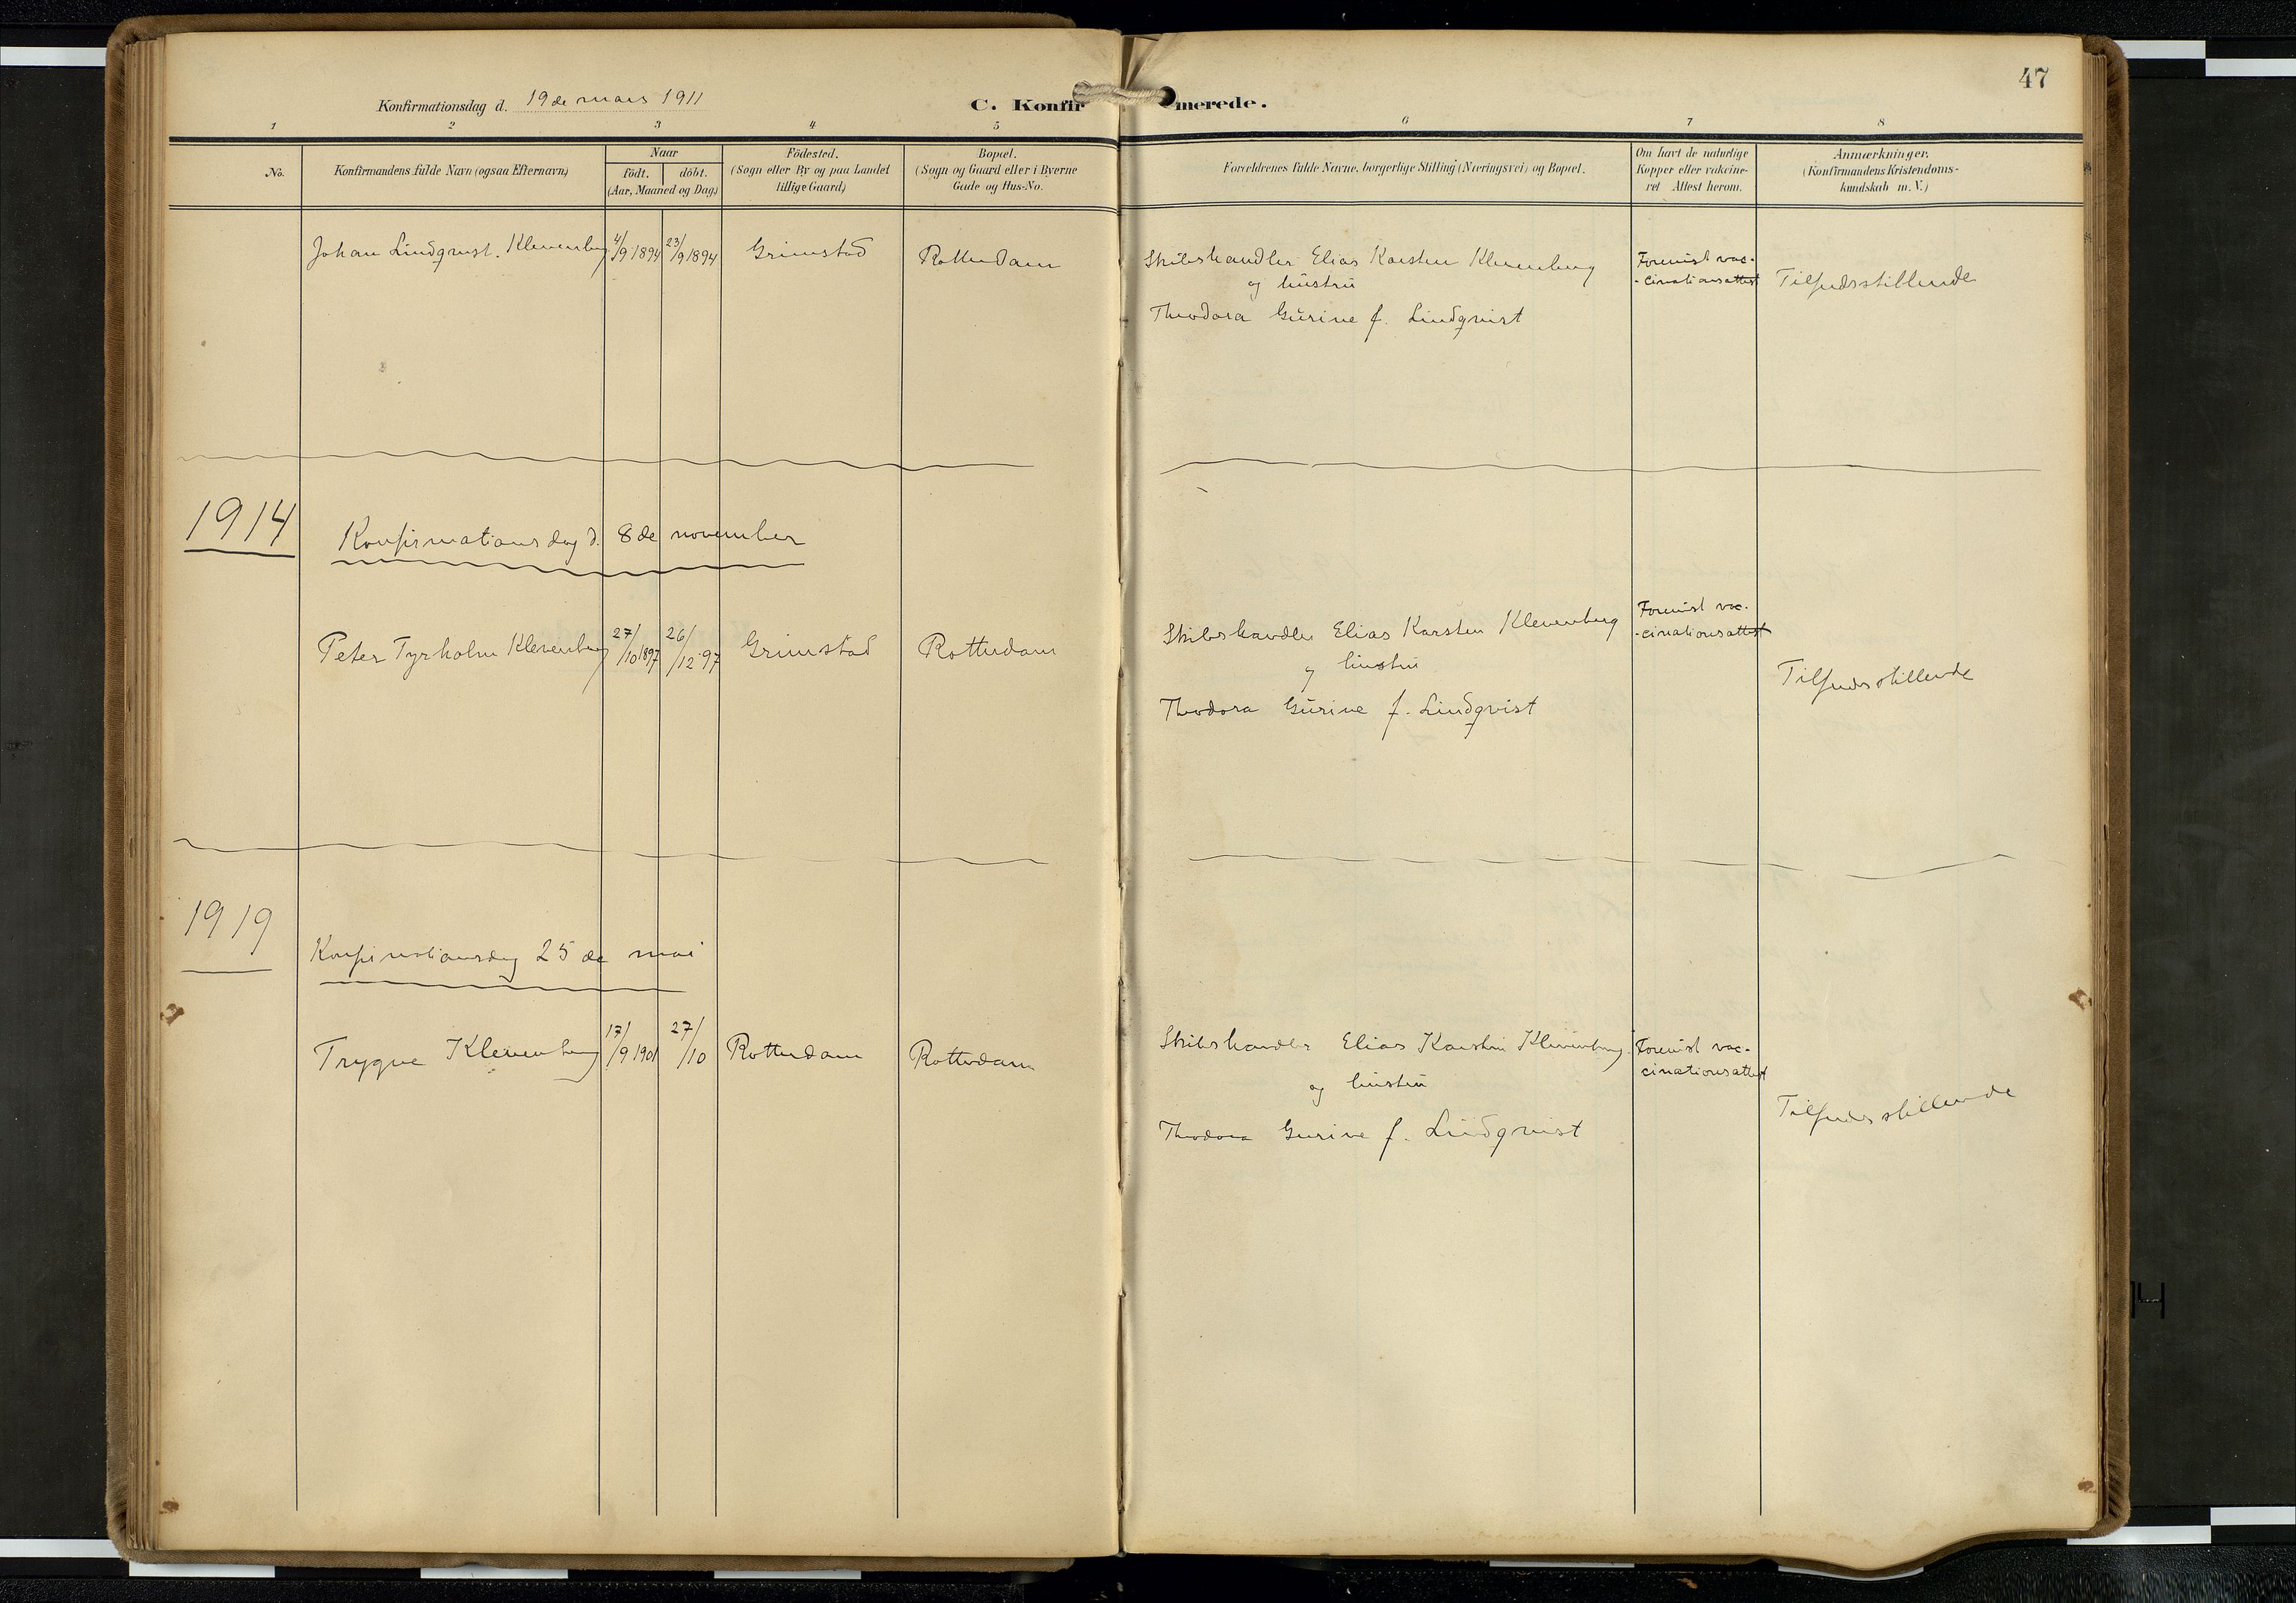 47
Konfirmationsdag d. 19de mars 1911
C. Konfirmerede.
1 2 3 4 5 6 7 8
No.
Konfirmandens fulde Navn (ogsaa Efternavn)
Naar
født. døbt.
(Aar, Maaned og Dag)
Fødested.
(Sogn eller By og paa Landet
tillige Gaard)
Bopæl.
(Sogn og Gaard eller i Byerne
Gade og Hus-No.
Forældrenes fulde Navne, borgerlige Stilling (Næringsvei) og Bopæl.
Om havt de naturlige
Kopper eller vakcine-
ret Attest herom.
Anmærkninger.
(Konfirmandens Kristendoms-
kundskab m. V.)
Johan Lindqvist. Klevenberg 4/9 1894 23/9 1894 Grimstad Rotterdam
Skibshandler Elias Karsten Klevenberg
og hustru
Theodora Gurine f. Lindqvist
Forevist vac-
-cinationsattest
Tilfredsstillende
1914
Konfirmationsdag d. 8de november
Peter Tyrholm Klevenberg 27/10 1897 26/12 97 Grimstad Rotterdam
Skibshandler Elias Karsten Klevenberg
og hustru
Theodora Gurine f. Lindqvist
Forevist vac-
-cinationsattest
Tilfredsstillende
1919
Konfirmationsdag 25de mai
Trygve Klevenberg 17/9 1901 27/10 Rotterdam Rotterdam
Skibshandler Elias Karsten Klevenberg
og hustru
Theodora Gurine f. Lindqvist
Forevist vac-
cinationsattest
Tilfredsstillende